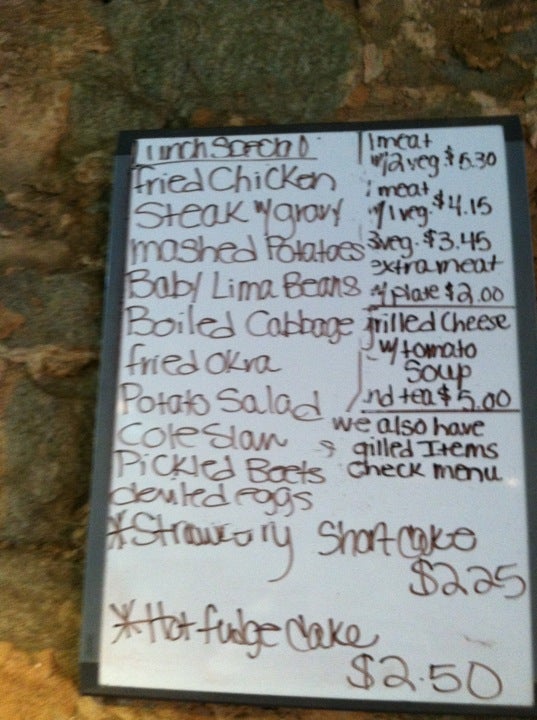 Lunch Special
fried Chicken
Steak w/gravy
mashed Potatoes
Baby Lima Beans
Boiled Cabbage
fried Okra
Potato Salad
Cole Slaw
Pickled Beets
deviled eggs
*Strawbury Short Cake
$2.25
*Hot fudge Cake
$2.50
1 meat
w/2 veg $5.30
1 meat
w/1 veg. $4.15
3 veg. $3.45
extra meat
w/ plate $2.00
grilled Cheese
w/ tomato
Soup
nd tea $5.00
we also have
gilled Items
check menu